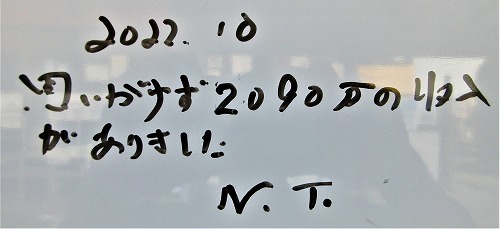 2022.10
思いがけず2090万の収入
がありました
N.T.